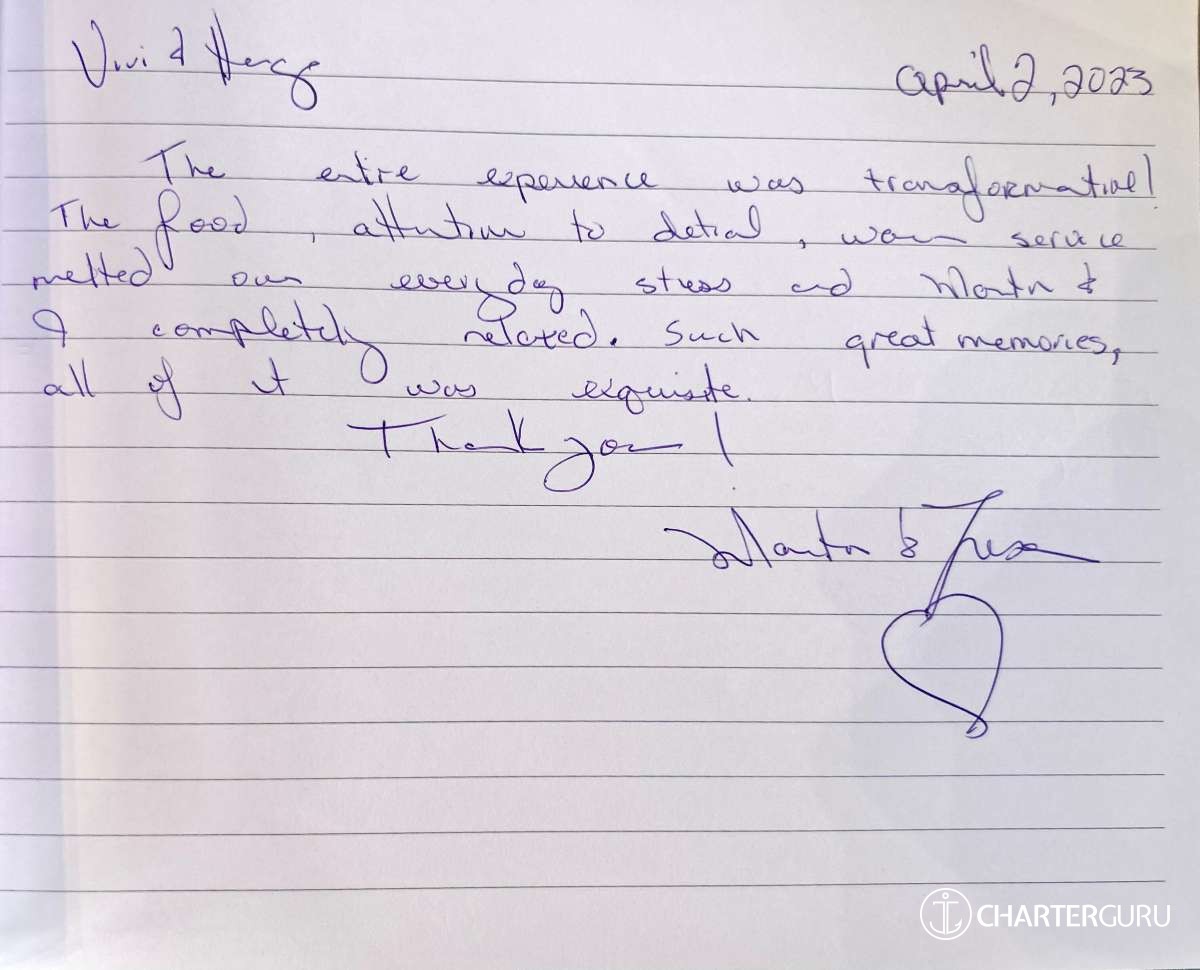 Vivi & April 2, 2023
The entire experience was transformative!
The food, attention to detial, warm service
melted our everyday stress and Martin &
I completely relaxed. Such great memories,
all of it was exquisite.
Thank you!
Martin &
CHARTERGURU